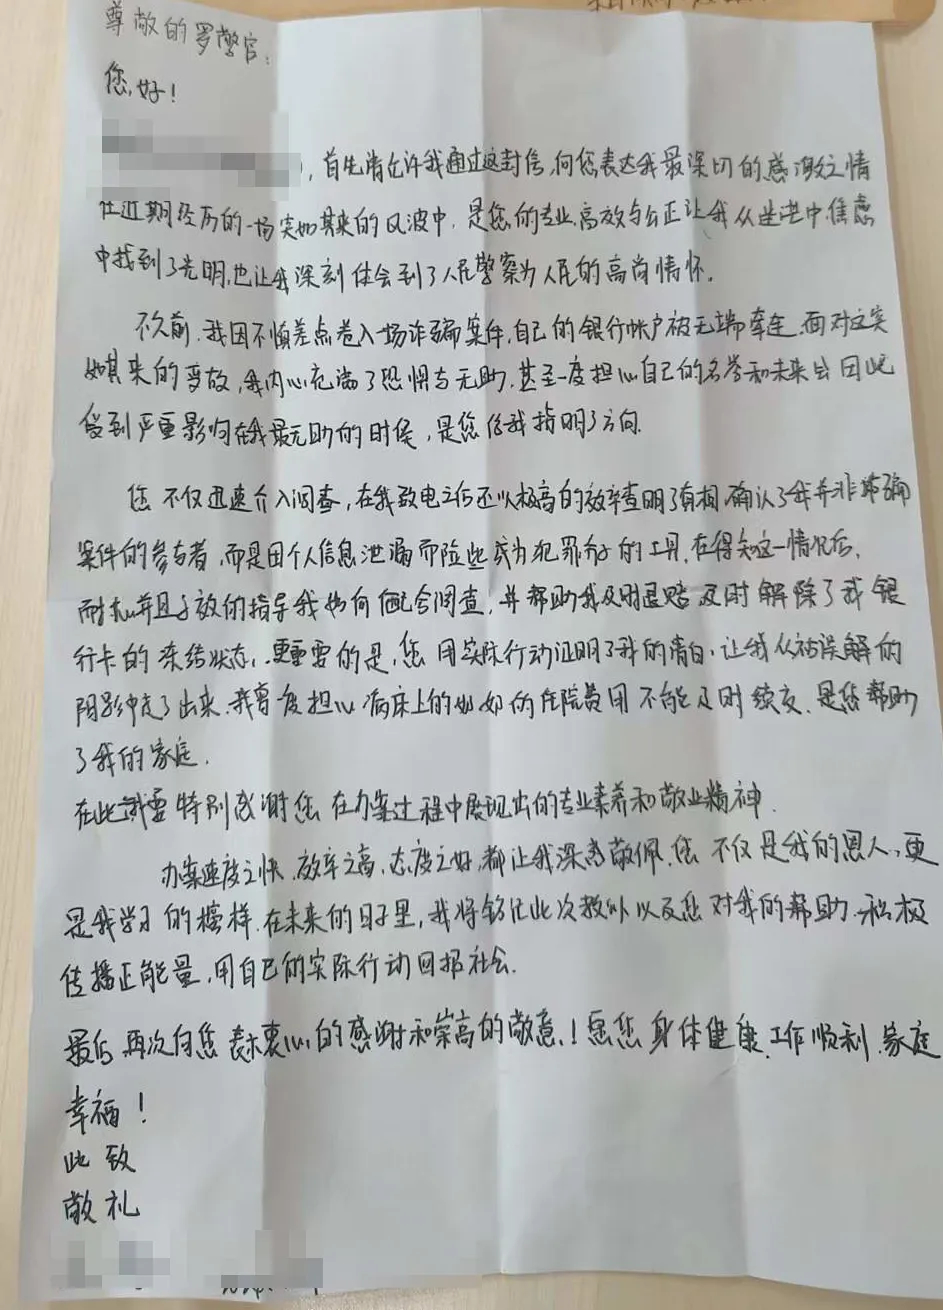 尊敬的罗警官：
您，好！
，首先请允许我通过这封信，向您表达我最深切的感激之情
在近期经历的一场突如其来的风波中，是您的专业、高效与公正让我从迷茫中、焦虑
中找到了光明，也让我深刻体会到了人民警察为人民的高尚情怀。
不久前，我因不慎差点卷入一场诈骗案件，自己的银行帐户被无端牵连，面对这突
如其来的变故，我内心充满了恐惧与无助，甚至一度担心自己的名誉和未来会因此
受到严重影响在我最无助的时侯，是您给我指明了方向．
您不仅迅速介入调查，在我致电之后还以极高的效率查明了真相，确认了我并非诈骗
案件的参与者，而是因个人信息泄漏而险些成为犯罪分子的工具，在得知这一情况后，
耐心并且高效的指导我如何配合调查，并帮助我及时退赔及时解除了我银
行卡的冻结状态，更重要的是，您用实际行动证明了我的清白，让我从被误解的
阴影中走了出来，我曾一度担心病床上的奶奶的住院费用不能及时续交，是您帮助
了我的家庭．
在此我要特别感谢您在办案过程中展现出的专业素养和敬业精神．
办案速度之快，效率之高，态度之好，都让我深感敬佩，您不仅是我的恩人，更
是我学习的榜样，在未来的日子里，我将铭记此次教训以及您对我的帮助，积极
传播正能量，用自己的实际行动回报社会．
最后再次向您表示衷心的感谢和崇高的敬意！愿您身体健康、工作顺利、家庭
幸福！
此致
敬礼